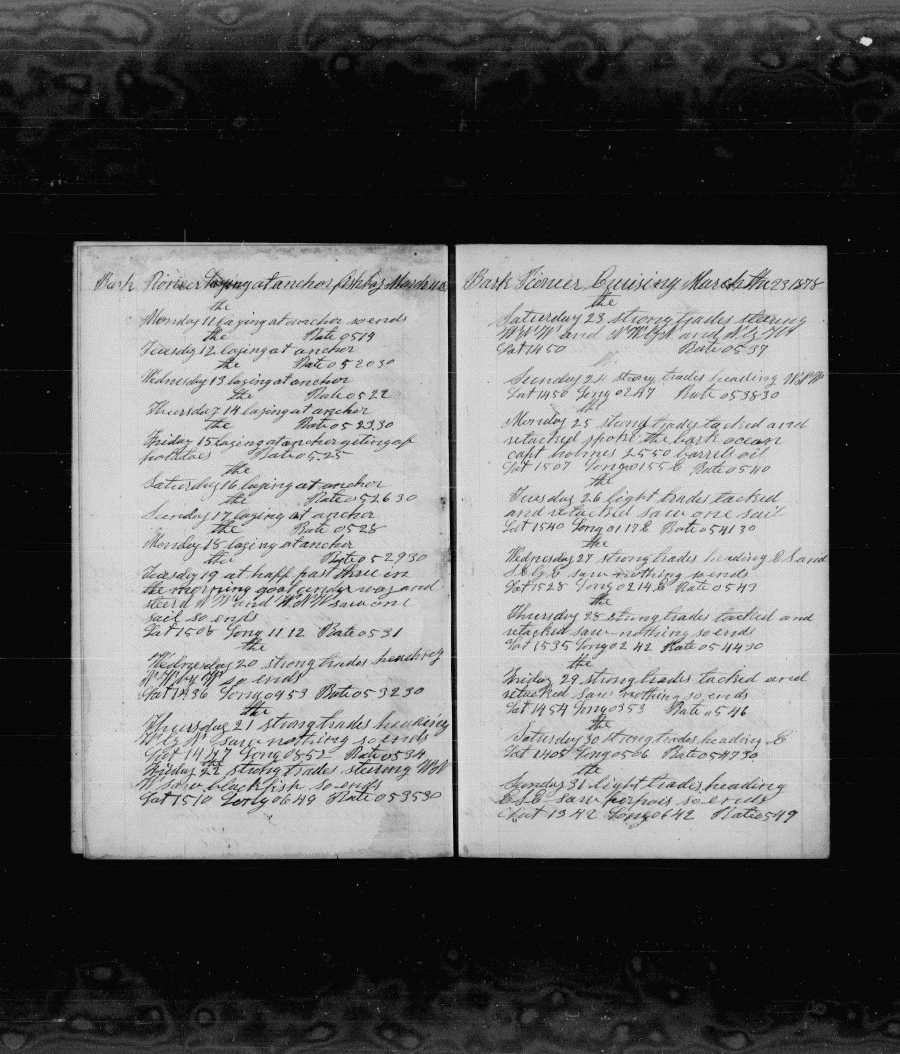 Bark Pioneer laying at anchor fish bay March
the
Monday 11 laying at anchor so ends
the Rate 0519
Tuesday 12 laying at anchor
the Rate 05 20 30
Wednesday 13 laying at anchor
the Rate 05 22
Thursday 14 laying at anchor
the Rate 05 23 30
Friday 15 laying at anchor geting of
potatoes Rate 05.25
the
Saturday 16 laying at anchor
the Rate 05 26 30
Sunday 17 laying at anchor
the Rate 0528
Monday 18 laying at anchor
the Rate 05 29 30
Tuesday 19 at happ past three in
the morning goat under way and
steerd N W and W N W saw one
sail so ends
Lat 1508 Long 11.12 Rate 0531
the
Wednesday 20 strong trades heading
W by W so ends
Lat 1436 Long 0953 Rate 053230
the
Thursday 21 strong trades heading
W by N saw nothing so ends
Lat 1447 Long 0852 Rate 0534
the
Friday 22 strong trades stering WbN
W saw blackfish so ends
Lat 1510 Long 0649 Rate 053530
Bark Pioneer Cruising March the 23 1878
the
Saturday 23 strong trades stering
W N W and N W by N and N by W
Lat 1450 Rate 0537
Sunday 24 strong trades heading WNW
Lat 1450 Long 0247 Rate 053830
the
Monday 25 strond trades tacked and
retacked spoke the bark ocean
capt holmes 2550 barrels oil
Lat 1507 Long 0155 E Rate 0540
the
Tuesday 26 light trades tacked
and retacked saw one sail
Lat 1540 Long 0117 E Rate 054130
the
Wednesday 27 strong trades heading E S and
S by E saw nothing so ends
Lat 1528 Long 0214 E Rate 0543
the
Thursday 28 strong trades tacked and
retacked saw nothing so ends
Lat 1535 Long 0242 Rate 054430
the
Friday 29 strong trades tacked and
retacked saw nothing so ends
Lat 1454 Long 0353 Rate 0546
the
Saturday 30 strong trades heading E
Lat 1405 Long 0506 Rate 054730
the
Sunday 31 light trades heading
E S E saw porpois so ends
Lat 1342 Long 0642 Rate 0549